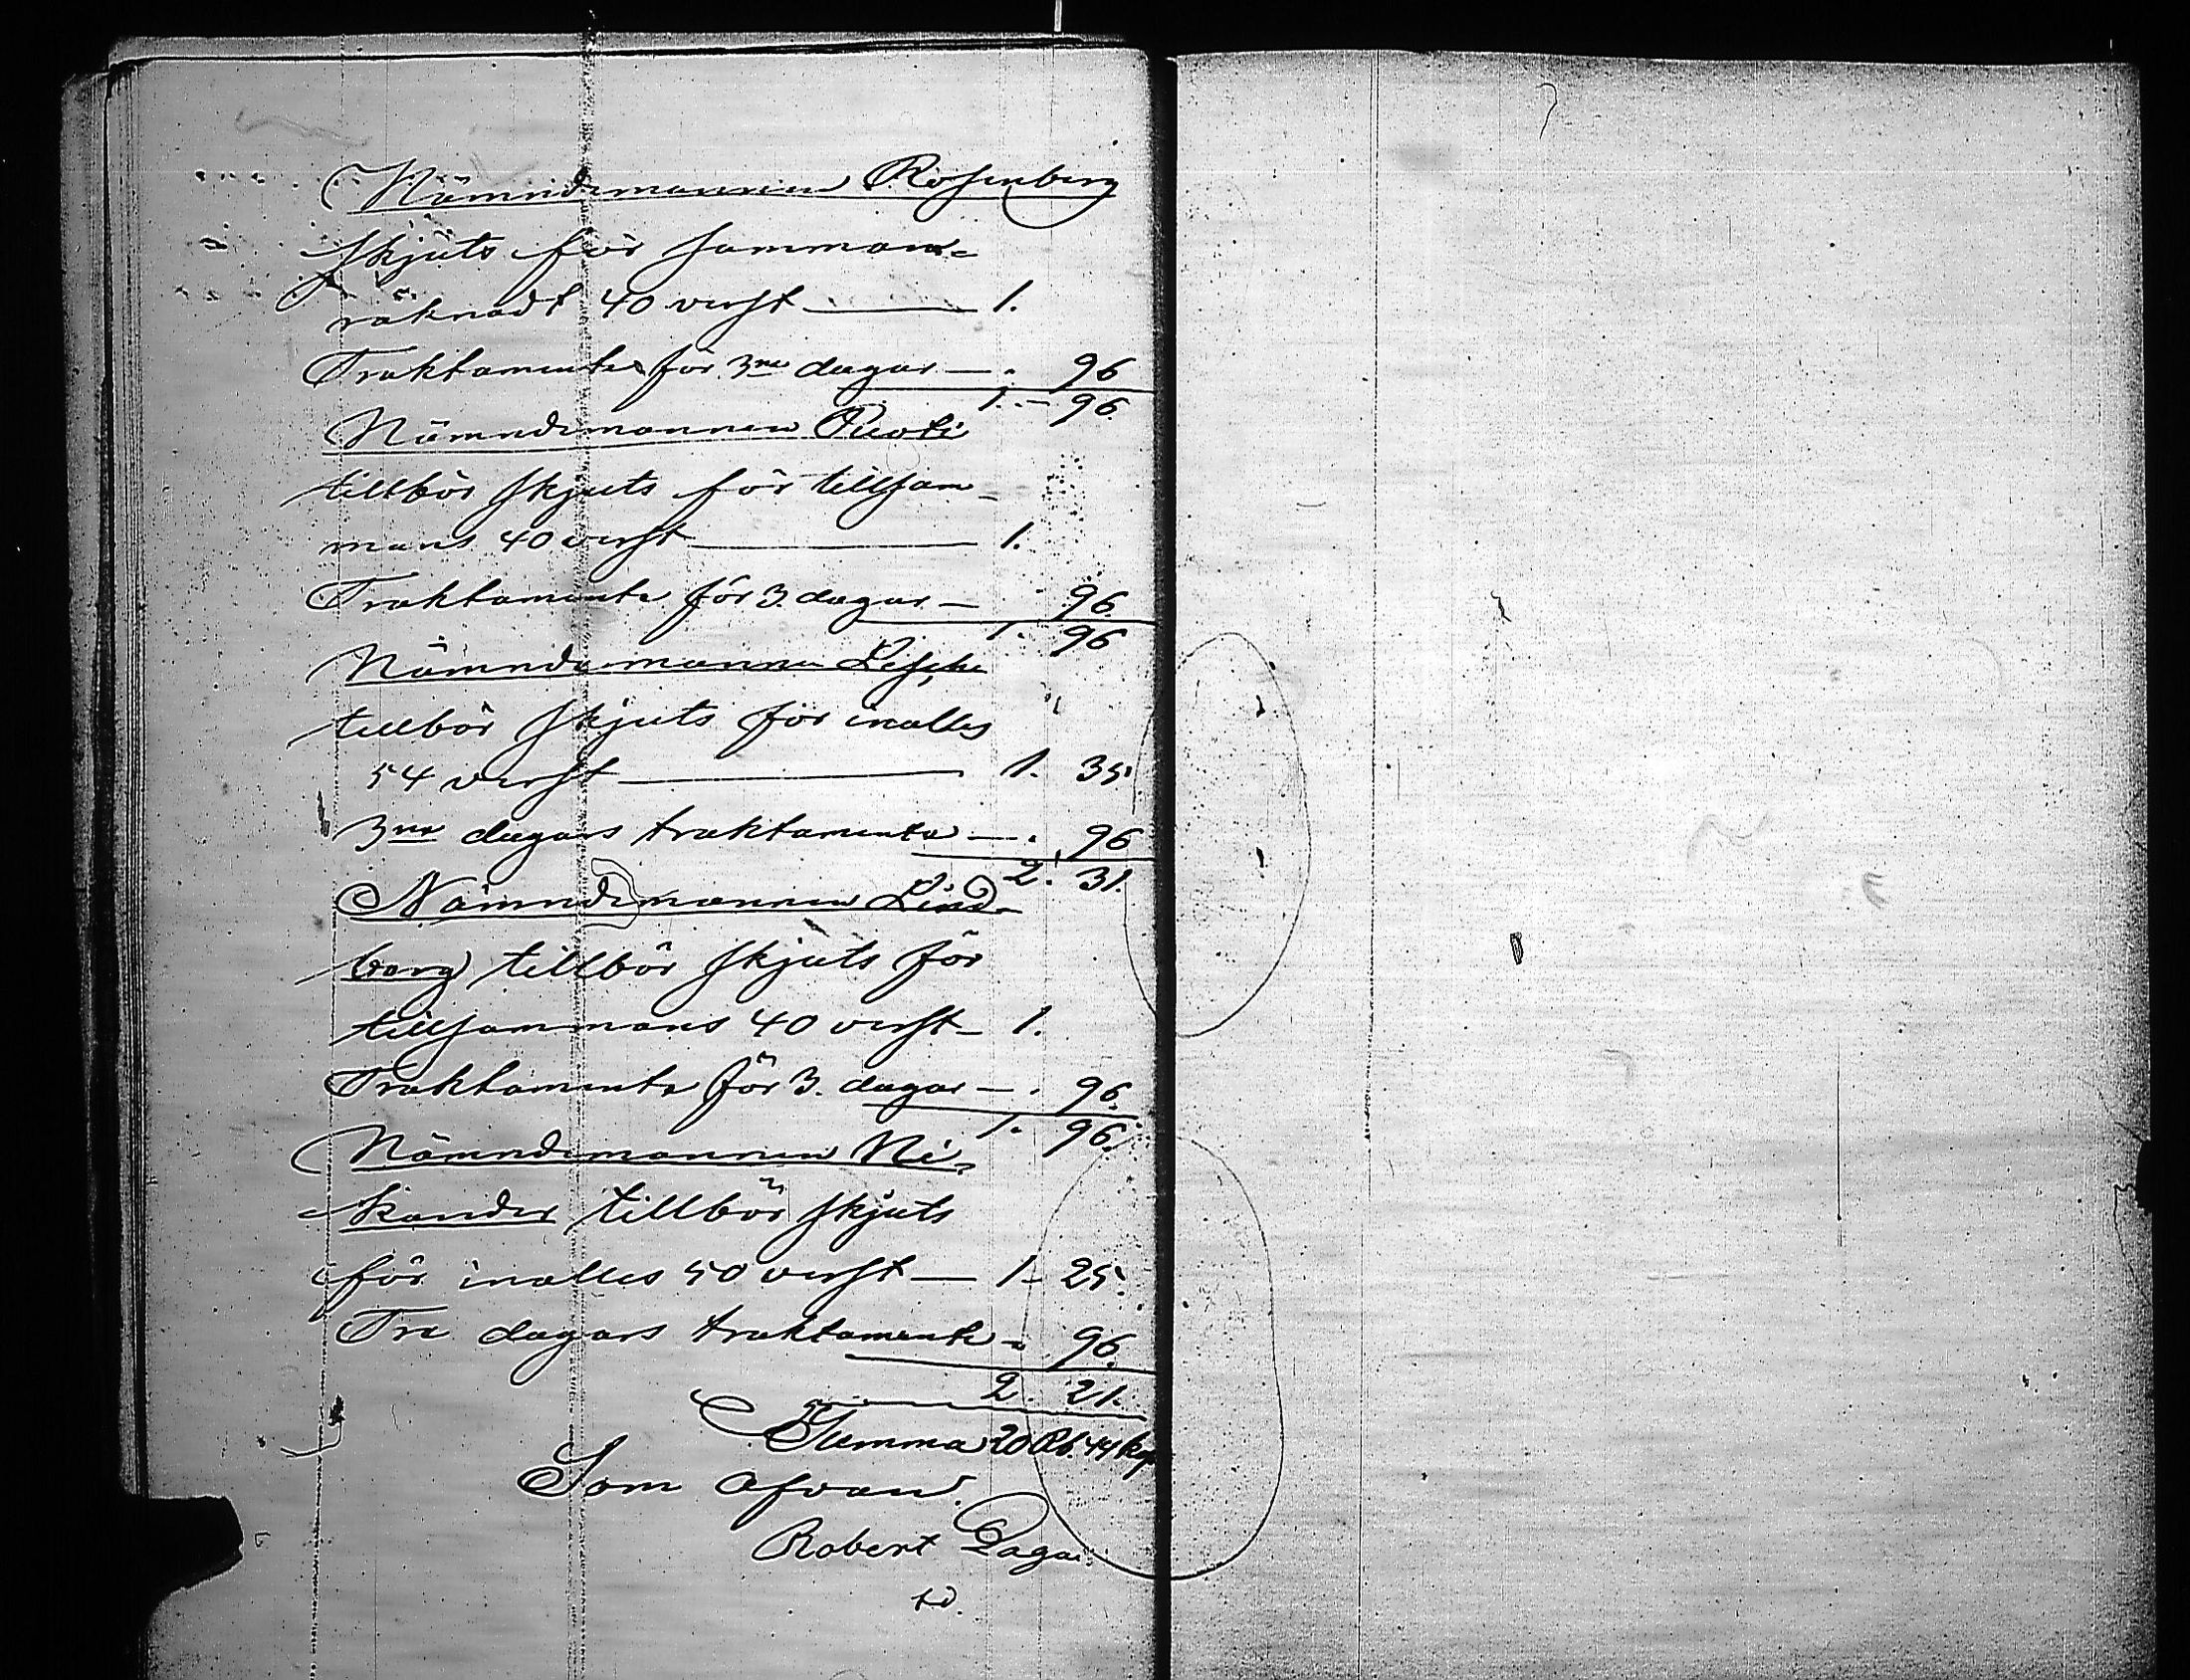 Nämndemannen Rosenberg
skjuts för samman-
räknadt 40 verst — 1.
Traktamente för 3ne dagar — . 96
1. — 96.
Nämndemannen Puoti
tillbör skjuts för tillsam-
mans 40 verst — 1.
Traktamente för 3. dagar — 96.
1. 96
Nämndemannen
tillbör skjuts för inalles
54 verst — 1. 35.
3ne dagars traktamente — . 96
2. 31.
Nämndemannen Lind-
berg tillbör skjuts för
tillsammans 40 verst — 1.
Traktamente för 3. dagar — . 96.
1. 96.
Nämndemannen Ni-
kander tillbör skjuts
för inalles 50 verst — 1 - 25.
Tre dagars traktamente - 96.
2. 21.
Summa 20 Rb. 44 kop
Som ofvan.
Robert